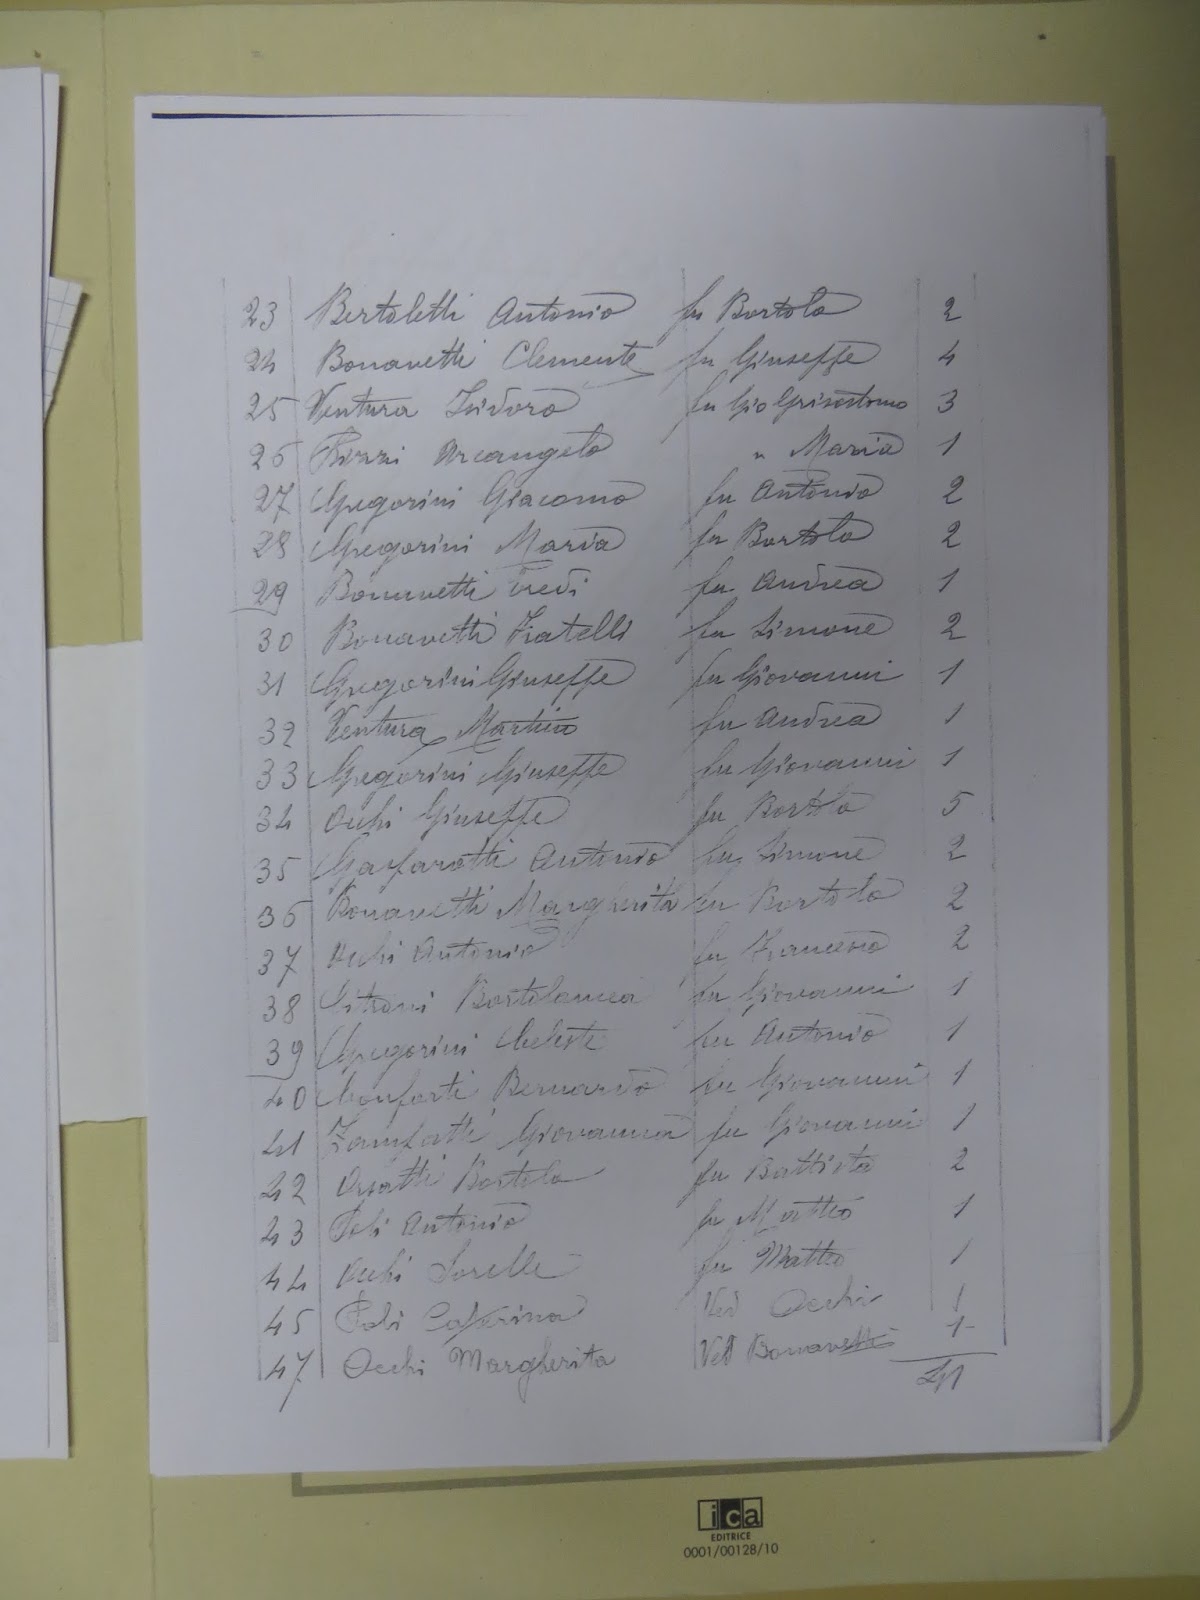 23 Bertoletti Antonio fu Bortolo 2
24 Bonavetti Clemente fu Giuseppe 4
25 Ventura Isidoro fu Gio Grisostomo 3
26 Arcangelo " Maria 1
27 Gregorini Giacomo fu Antonio 2
28 Gregorini Maria fu Bortolo 2
29 Bonavetti Eredi fu Andrea 1
30 Bonavetti Fratelli fu Simone 2
31 Gregorini Giuseppe fu Giovanni 1
32 Ventura Martino fu Andrea 1
33 Gregorini Giuseppe fu Giovanni 1
34 Occhi Giuseppe fu Bortolo 5
35 Gasparotti Antonio fu Simone 2
36 Bonavetti Margherita fu Bortolo 2
37 Occhi Antonio fu Francesco 2
38 Citroni Bortolamea fu Giovanni 1
39 Gregorini Celeste fu Antonio 1
40 Conforti Bernardo fu Giovanni 1
41 Zampatti Giovanna fu Giovanni 1
42 Orsatti Bortolo fu Battista 2
43 Poli Antonio fu Matteo 1
44 Occhi Sorelle fu Matteo 1
45 Poli Caterina Ved Occhi 1
47 Occhi Margherita Ved Bonavetti 1
41
ica
EDITRICE
0001/00128/10